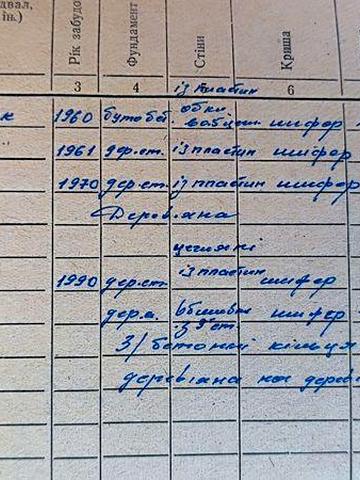 двал,
ін.)
Рік забудо
Фундамент
Стіни
Криша
3 4 6
із пластин
к 1960 бутобет. обкл. шифер
1961 дер.ст. із пластин шифер
1970 дер.ст. із пластин шифер
Дерев'яна
цегляні
1990 дер.ст. із пластин шифер
шифер
з 9 ст.
З/бетонні кільця
дерев'яна на дерев